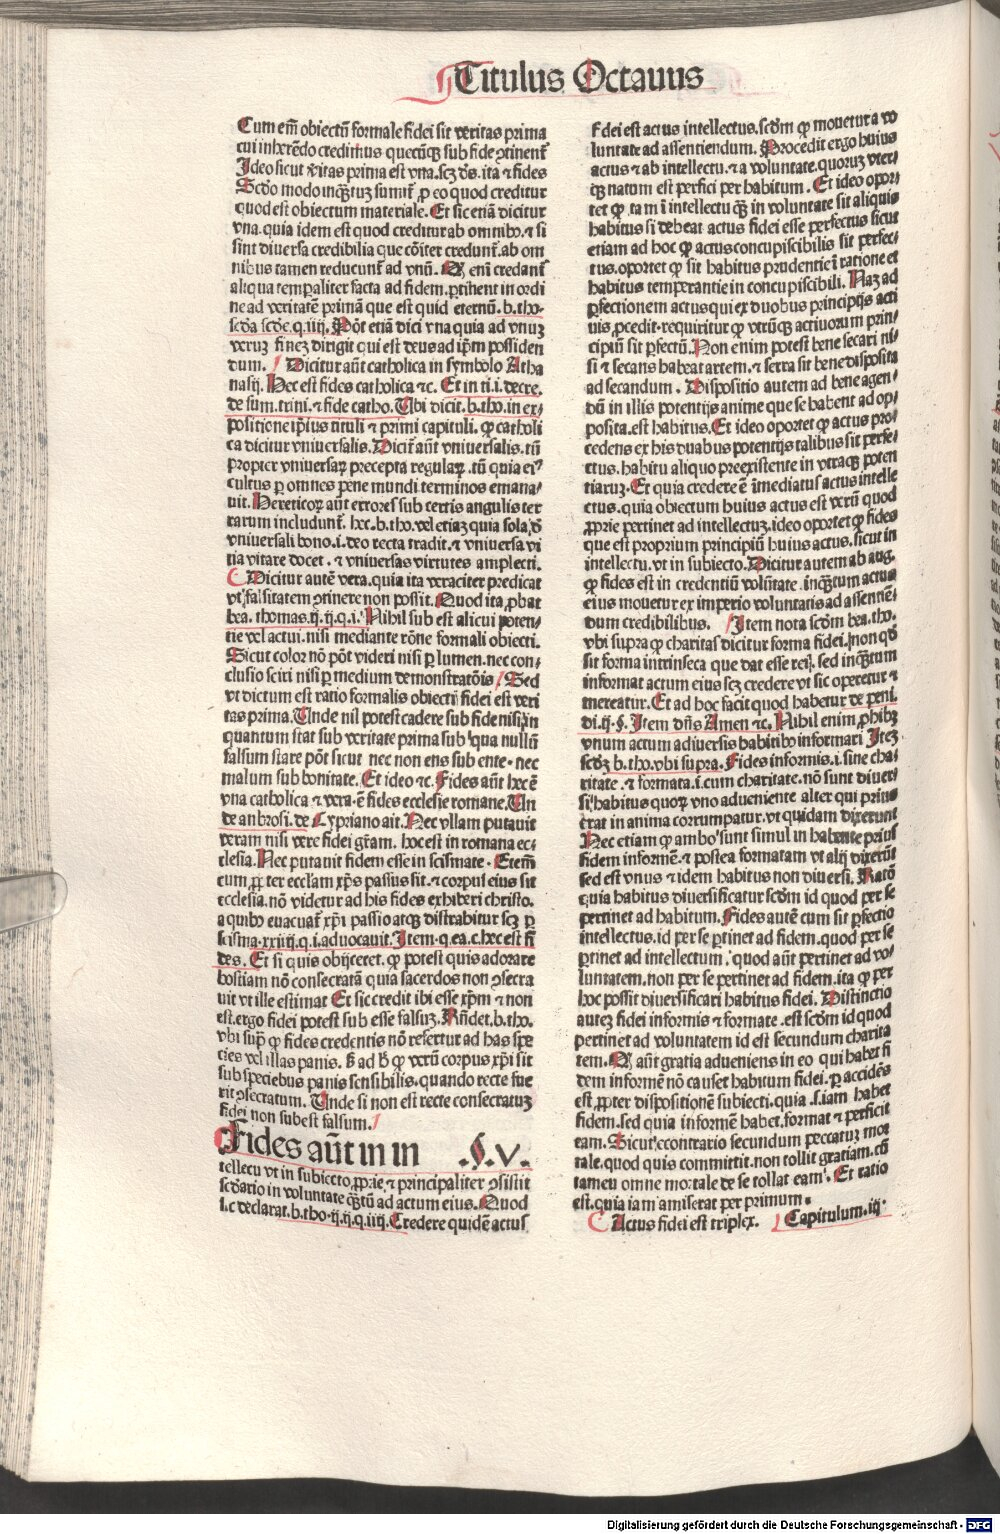 Titulus Octauus
Cum em̄ obiectū formale fidei sit veritas prima
cui inherēdo credimus quecūq sub fide ꝯtinent̄
Ideo sicut v̄itas prima est vna.scz ds̄. ita ⁊ fides
Scd̄o modo inq̄ꝫtuꝫ sumit̄ ꝓ eo quod creditur
quod est obiectum materiale. Et sic etiā dicitur
vna.quia idem est quod creditur ab omnibꝰ.⁊ si
sint diuersa credibilia que cōiter credunt̄.ab om
nibus tamen reducunt̄ ad vnū. Q enī credant̄
aliqua tempaliter facta ad fidem.ꝑtinent in ordi
ne ad veritatē primā que est quid eternū.b.tho.
scd̄a scd̄e.q.iiij. Pōt etiā dici vna quia ad vnuꝫ
veruꝫ fineꝫ dirigit qui est deus ad ip̄m possiden
dum. Dicitur aūt catholica in symbolo Atha
nasij. Hec est fides catholica ⁊c. Et in ti.i.decre.
de sum.trini.⁊ fide catho. Ubi dicit.b.tho.in ex-
positione ip̄ius tituli ⁊ primi capituli. ꝙ catholi
ca dicitur vniuersalis. Dicit̄ aūt vniuersalis.tū
propter vniuersaꝝ precepta regulaꝝ.tū quia eiꝰ
cultus ꝑ omnes pene mundi terminos emana-
uit. Hereticoꝝ aūt errores sub certis angulis ter
rarum includunt̄. hec.b.tho.vel etiaꝫ quia sola d̄
vniuersali bono.i.deo recta tradit.⁊ vniuersa vi
tia vitare docet.⁊ vniuersas virtutes amplecti.
Dicitur autē vera.quia ita veraciter predicat
vt falsitatem ꝯtinere non possit. Quod ita ꝓbat
bea.thomas.ij.ij.q.i. Nihil sub est alicui poten-
tie vel actui.nisi mediante rōne formali obiecti.
Sicut color nō pōt videri nisi ꝑ lumen.nec con-
clusio sciri nisi ꝑ medium demonstratōis. Sed
vt dictum est ratio formalis obiecti fidei est veri
tas prima. Unde nil potest cadere sub fide nisi in
quantum stat sub veritate prima sub qua nullū
falsum stare pōt sicut nec non ens sub ente. nec
malum sub bonitate. Et ideo ⁊c. Fides aūt hec ē
vna catholica ⁊ vera.ē fides ecclesie romane. Un
de ambrosi.de Cypriano ait. Nec vllam putauit
veram nisi vere fidei gr̄am. hoc est in romana ec-
clesia. Nec putauit fidem esse in scismate. Etem̄
cum ꝓpter eccl̄am xp̄s passus sit.⁊ corpus eius sit
ecclesia.nō videtur ad his fides exhiberi christo.
a quibꝰ euacuat̄ xp̄i passio atqꝫ distrahitur scꝫ ꝑ
scisma.xxiiij.q.i.aduocauit. Item.q.ea.c.hec est fi
des. Et si quis obijceret. ꝙ potest quis adorare
hostiam nō consecratā quia sacerdos non ꝯsecra
uit vt ille estimat Et sic credit ibi esse xp̄m ⁊ non
est.ergo fidei potest sub esse falsuꝫ. Rn̄det.b.tho.
vbi sup̄ ꝙ fides credentis nō refertur ad has spe
cies vel illas panis. ß ad ß ꝙ verū corpus xp̄i sit
sub speciebus panis sensibilis.quando recte fue
rit ꝯsecratum. Unde si non est recte consecratuꝫ
fidei non subest falsum.
Fides aūt in in .§.v.
tellectu vt in subiecto.ꝓprie ⁊ principaliter ꝯsistit
scd̄ario in voluntate q̄ꝫtū ad actum eius. Quod
s.c declarat.b.tho.ij.ij.q.iiij. Credere quidē actus
fidei est actus intellectus.scd̄m ꝙ mouetur a vo
luntate ad assentiendum. Procedit ergo huius
actus ⁊ ab intellectu.⁊ a voluntate.quoruꝫ vter-
qꝫ natum est perfici per habitum. Et ideo opor-
tet ꝙ tam ī intellectu q̄ꝫ in voluntate sit aliquis
habitus si debeat actus fidei esse perfectus sicut
etiam ad hoc ꝙ actus concupiscibilis sit perfec-
tus.oportet ꝙ sit habitus prudentie ī ratione et
habitus temperantie in concupiscibili. Naꝫ ad
ꝑfectionem actus qui ex duobus principijs acti
uis ꝓcedit requiritur ꝙ vtrūqꝫ actiuorum prin-
cipiū sit ꝑfectū. Non enim potest bene secari ni-
si ⁊ secans habeat artem.⁊ serra sit bene disposita
ad secandum. Dispositio autem ad bene agen-
dū in illis potentijs anime que se habent ad op-
posita.est habitus. Et ideo oportet ꝙ actus pro-
cedens ex his duabus potentijs talibus sit perfe-
ctus.habitu aliquo preexistente in vtraqꝫ poten
tiaruꝫ. Et quia credere ē īmediatus actus intelle
ctus.quia obiectum huius actus est verū quod
ꝓprie pertinet ad intellectuꝫ.ideo oportet ꝙ fides
que est proprium principiū huius actus.sicut in
intellectu.vt in subiecto. Dicitur autem ab aug.
ꝙ fides est in credentiū volūtate.inq̄ꝫtum actus
eius mouetur ex imperio voluntatis ad assentiē-
dum credibilibus. Item nota scd̄m bea.tho.
vbi supra ꝙ charitas dicitur forma fidei.non qd̄
sit forma intrinseca que dat esse rei. sed inq̄ꝫtum
informat actum eius scꝫ credere vt sic operetur ⁊
mereatur. Et ad hoc facit quod habetur de peni.
di.ij.§. Item dn̄s Amen ⁊c. Nihil enim ꝓhibꝫ
vnum actum a diuersis habitibꝰ informari Iteꝫ
scd̄ꝫ b.tho.vbi supra. Fides informis.i.sine cha-
ritate.⁊ formata.i.cum charitate.nō sunt diuer-
si habitus quoꝝ vno adueniente alter qui prius
erat in anima corrumpatur.vt quidam dixerunt
Nec etiam ꝙ ambo sunt simul in habente prius
fidem informē.⁊ postea formatam vt alij dixerūt
sed est vnus ⁊ idem habitus non diuersi. Ratō
quia habitus diuersificatur scd̄m id quod per se
pertinet ad habitum. Fides autē cum sit ꝑfectio
intellectus.id per se ꝑtinet ad fidem.quod per se
ꝑtinet ad intellectum. quod aūt pertinet ad vo-
luntatem.non per se pertinet ad fidem.ita ꝙ per
hoc possit diuersificari habitus fidei. Distinctio
auteꝫ fidei informis ⁊ formate.est scd̄m id quod
pertinet ad voluntatem id est secundum charita
tem. Q aūt gratia adueniens in eo qui habet fi
dem informē nō causet habitum fidei.ꝑ accidēs
est.ꝓpter dispositionē subiecti.quia .s.iam habet
fidem.sed quia informē habet.format ⁊ perficit
eam. Sicut econtrario secundum peccatuꝫ mor
tale.quod quis committit.non tollit gratiam.cū
tamen omne mortale de se tollat eam. Et ratio
est.quia iam amiserat per primum.
Actus fidei est triplex. Capitulum.iij.
Digitalisierung gefördert durch die Deutsche Forschungsgemeinschaft - DFG